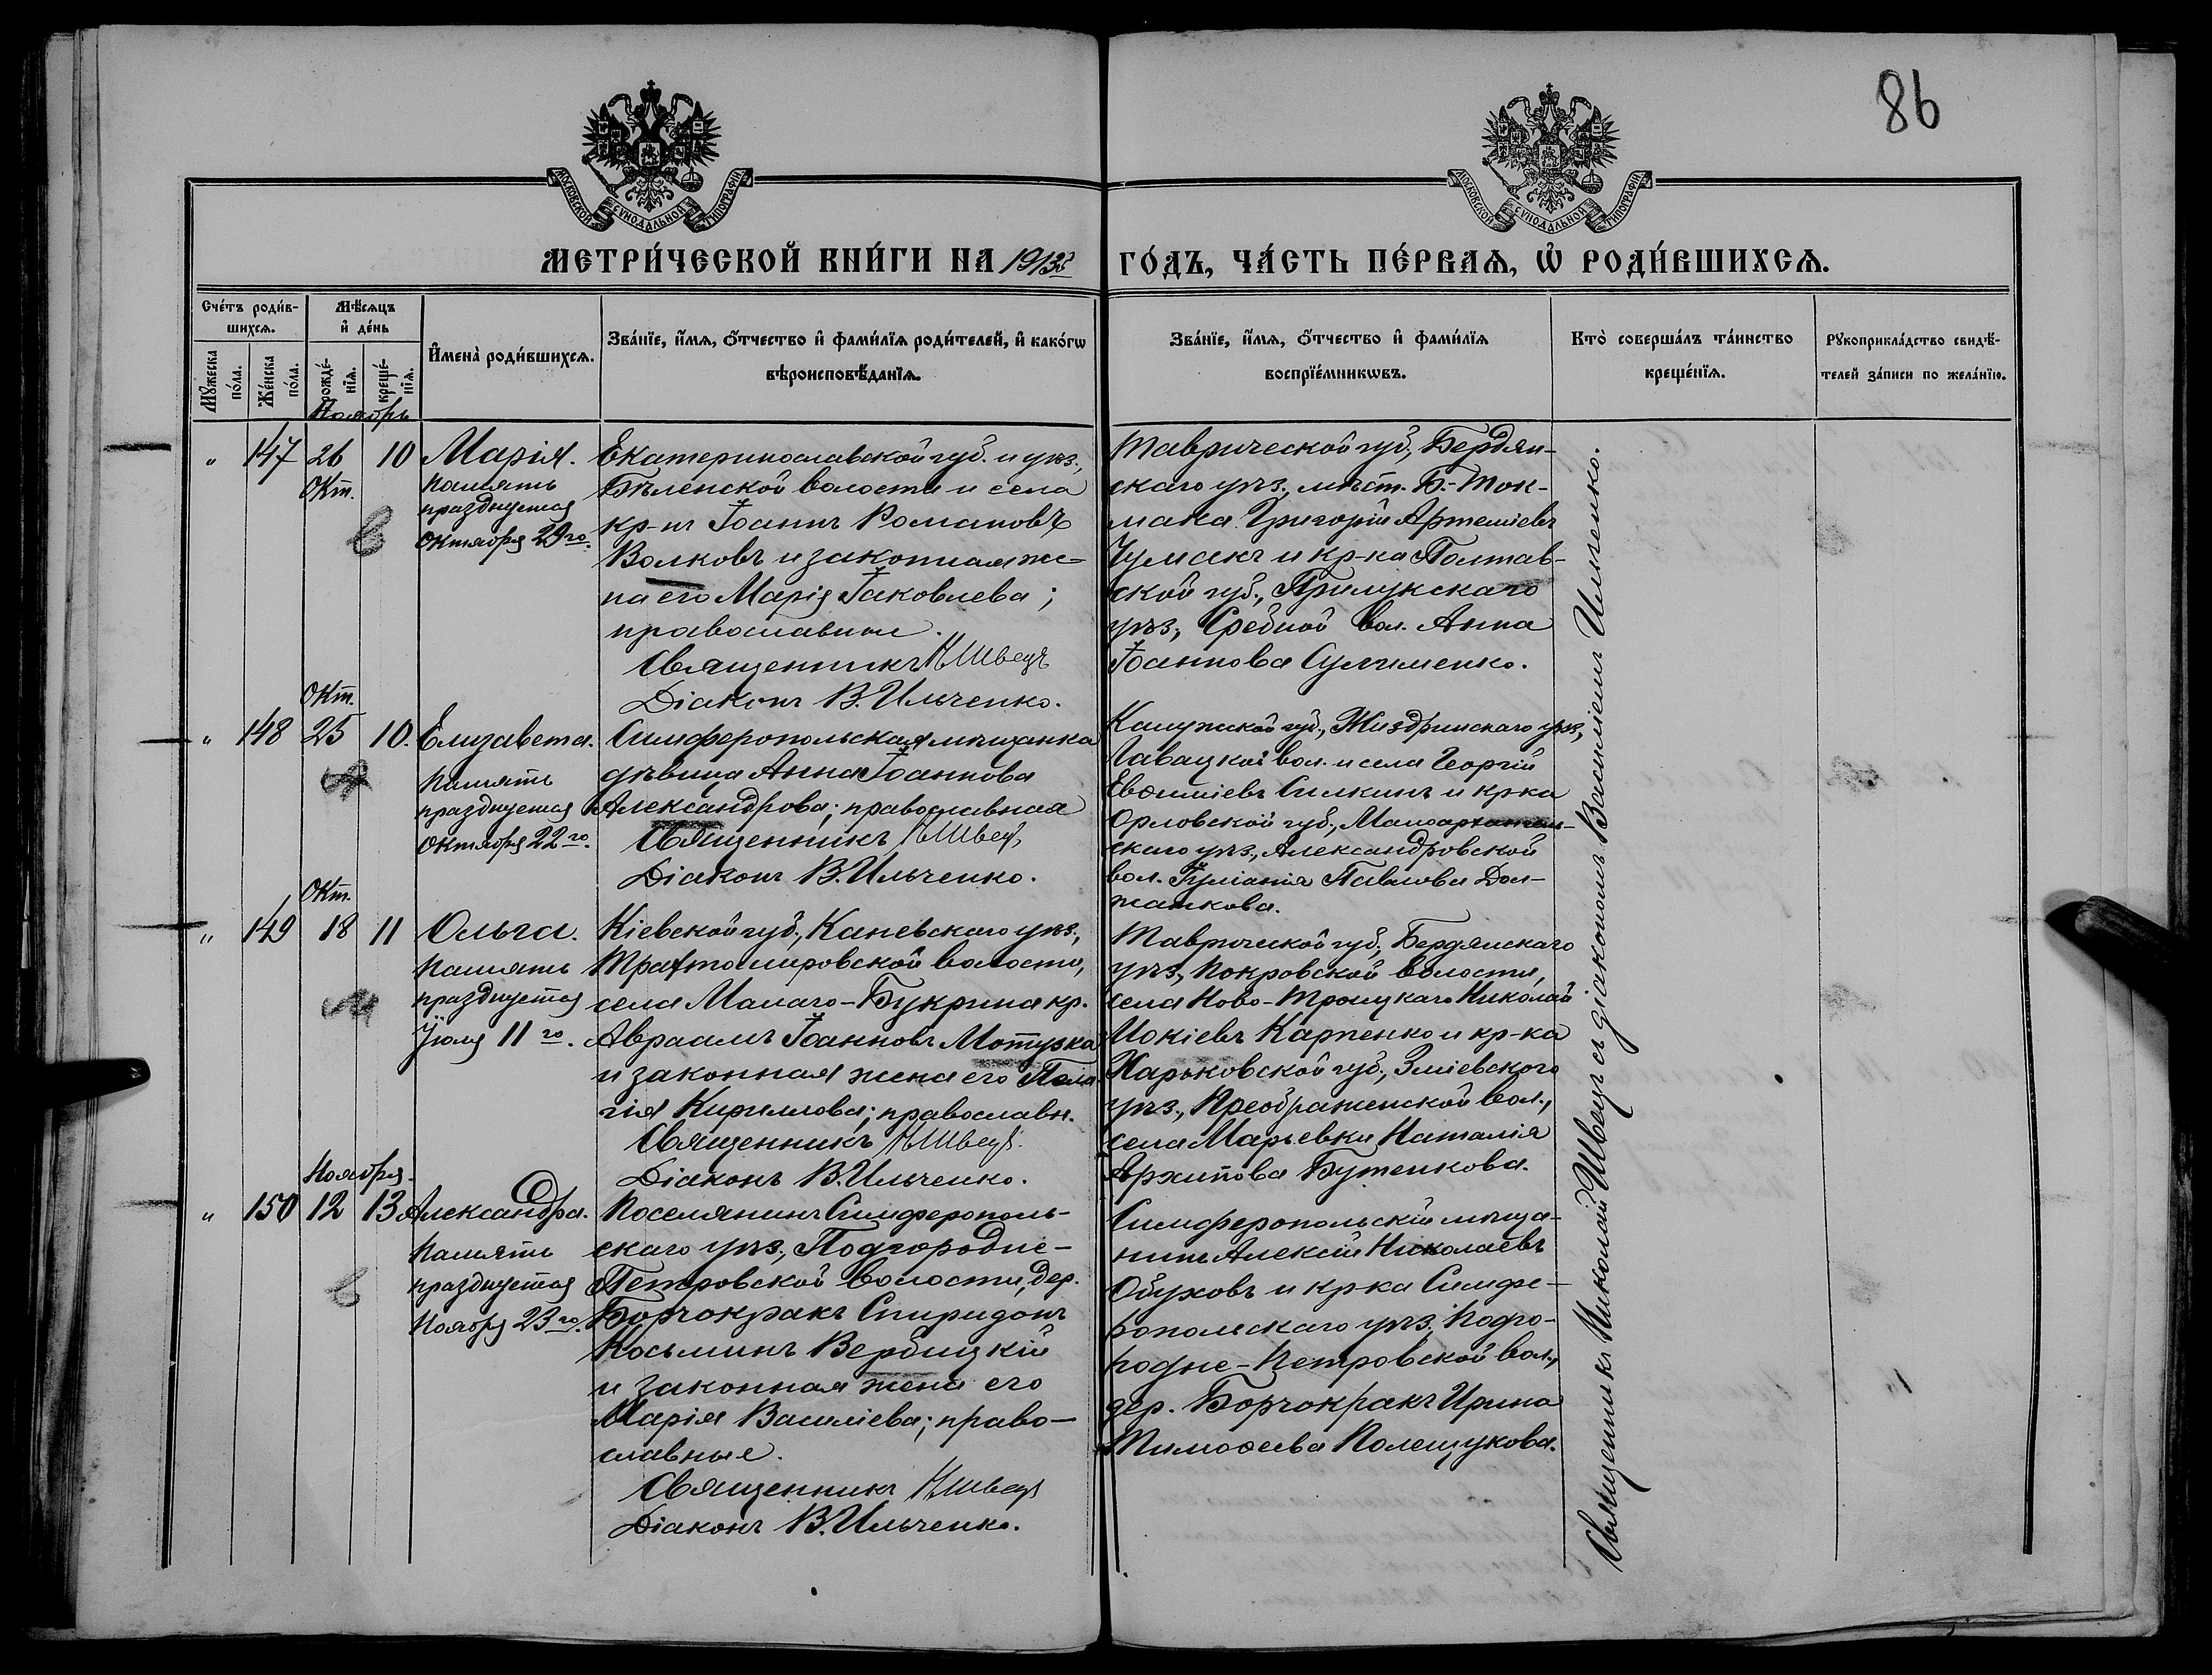 86
МОСКОВСКОЙ СѴНОДАЛЬНОЙ ТИПОГРАФІИ
МОСКОВСКОЙ СѴНОДАЛЬНОЙ ТИПОГРАФІИ
МЕТРИ́ЧЕСКОЙ КНИ́ГИ НА 1913й ГО́ДЪ, ЧА́СТЬ ПЕ́РВАѦ, Ѡ҆ РОДИ́ВШИХСѦ.
Сче́тъ роди́в-
шихсѧ.
Мꙋ́жеска по́ла.
Же́нска по́ла.
Мѣ́сѧцъ
и҆ де́нь
рожде́-нїѧ.
креще́-нїѧ.
И҆мена̀ роди́вшихсѧ.
Зва́нїе, и҆́мѧ, о҆́тчество и҆ фами́лїѧ роди́телей, и҆ како́гѡ
вѣроисповѣ́данїѧ.
Зва́нїе, и҆́мѧ, о҆́тчество и҆ фами́лїѧ
воспрїе́мникѡвъ.
Кто̀ соверша́лъ та́инство
креще́нїѧ.
Рꙋкоприкла́дство свидѣ́-
телей за́писи по жела́нїю.
Ноябрь
" 147 26 10 Марія.
Окт.
Память
празднуется
Октября 29го.
Екатеринославской губ. и уѣз.,
Бѣленской волости и села
кр-нъ Іоаннъ Романовъ
Волковъ и законная же-
на его Марія Іаковлева;
православные.
Священникъ Н Швецъ
Діаконъ В. Ильченко.
Таврической губ., Бердян-
скаго уѣз., мѣст. Б.-Ток-
мака Григорій Артеміевъ
Чумакъ и кр-ка Полтав-
ской губ., Прилукскаго
уѣз., Сребной вол. Анна
Іоаннова Сулименко.
Окт.
" 148 25 10. Елизавета.
Память
празднуется
Октября 22го.
Симферопольская мѣщанка
дѣвица Анна Іоаннова
Александрова; православная
Священникъ Н Швецъ
Діаконъ В. Ильченко.
Калужской губ., Жиздринскаго уѣз.,
вол. и села Георгій
Евѳиміевъ Силкинъ и кр-ка
Орловской губ., Малоархангель-
скаго уѣз., Александровской
вол. Іуліанія Павлова Дол-
жикова.
Окт.
" 149 18 11 Ольга.
Память
празднуется
Іюля 11го.
Кіевской губ., Каневскаго уѣз.,
Трахтомировской волости,
села Малаго-Букрина кр.
Авраамъ Іоанновъ Мотузка
и законная жена его Пела
гія Кириллова; православн.
Священникъ Н Швецъ.
Діаконъ В. Ильченко.
Таврической губ., Бердянскаго
уѣз., Покровской волости,
села Ново-Троицкаго Николай
Мокіевъ Карпенко и кр-ка
Харьковской губ., Зміевского
уѣз., Преображенской вол.,
села Марьевки Наталія
Архипова Бутенкова.
Ноября.
" 150 12 13 Александра.
Память
празднуется
Ноября 23го.
Поселянинъ Симферополь-
скаго уѣз., Подгородне-
Петровской волости, дер.
Борчокракъ Спиридонъ
Косьминъ Вербицкій
и законная жена его
Марія Василіева; право-
славные.
Священникъ Н Швецъ
Діаконъ В. Ильченко.
Симферопольскій мѣща-
нинъ Алексій Николаевъ
Обуховъ и кр-ка Симфе-
ропольскаго уѣз., Подго-
родне-Петровской вол.,
дер. Борчокракъ Ирина
Тимоѳеева Полещукова.
Священникъ Николай Швецъ съ діакономъ Василіемъ Ильченко.